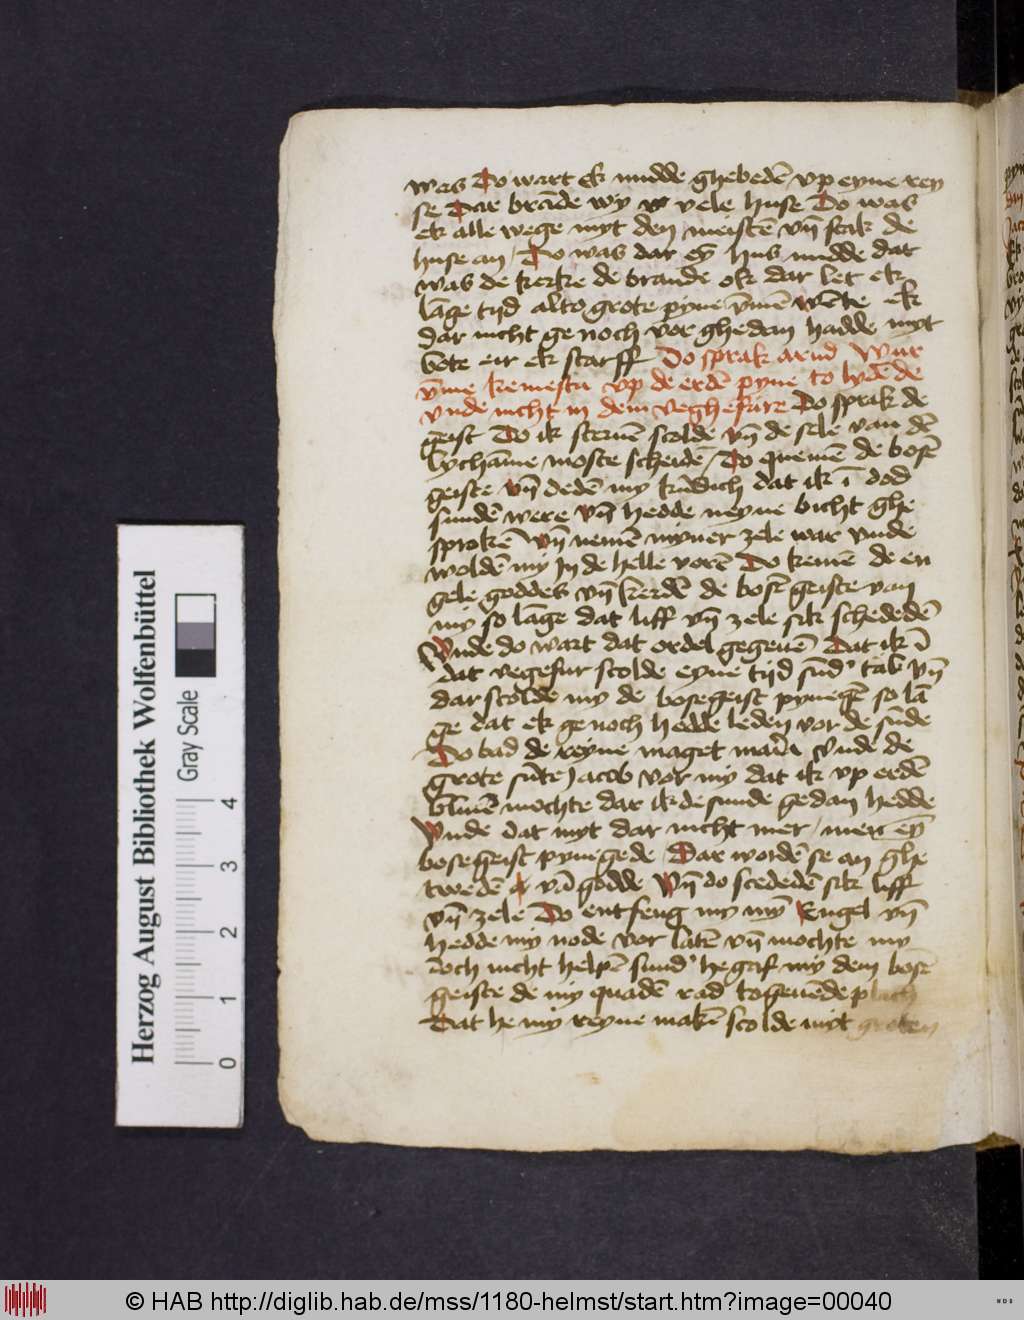 was Do wart ek mudde ghebedē vp eyne rey
se Dar brāde wy vele huse Do was
ek alle wege myt den meistē vn̄ stak de
huse an / Do was dar eȳ hus mudde dat
was de kerke de brande ok dar let ek
lāge tijd alto grote pyne v̄mē wēte ek
dar nicht ge noch vor ghe dan hadde myt
bote eir ek starff Do sprak arnd War
v̄me kemestu vp de erdē pyne to lydē de
vnde nicht in dem veghefure Do sprak de
geist Do ik steruē scolde vn̄ de sele van dē
lychāme moste scheidē Do quemē de bosē
geiste vn̄ dedē my kūdich dat ik ī dod
sundē were vn̄ hedde neyne bicht ghe
sprokē Vn̄ nemē myner zele war vnde
woldē my In de helle vorē Do kemē de en
gele goddes vn̄ kerdē de bosē geiste van
my so lāge dat liff vn̄ zele sik schededē
Vnde do wart dat ordel gegeuē Dat ik ī
dat vegefur scolde eyne tijd sūd' tal vn̄
dar scolde my de bose geist pynegē so lā
ge dat ek ge noch hedde leden vor de sūde
Do bad de reyne maget maria Vnde de
grote sūte Jacob vor my dat ik vp erdē
bliuē mochte dar ik de sunde gedan hedde
Vnde dat myt dar nicht mer / men eȳ
bose geist pynegede Dar wordē se an ghe
twedē vā godde Vn̄ do scededē sik liff
vn̄ zele Do entfeng my mȳ Engel vn̄
hedde my node vor latē vn̄ mochte my
doch nicht helpē sund' he gaf my dem bosē
geiste de my quadē rad to geuēde plach
Dat he my reyne makē scolde myt groten
Herzog August Bibliothek Wolfenbüttel
Gray Scale
0 1 2 3 4
© HAB http://diglib.hab.de/mss/1180-helmst/start.htm?image=00040